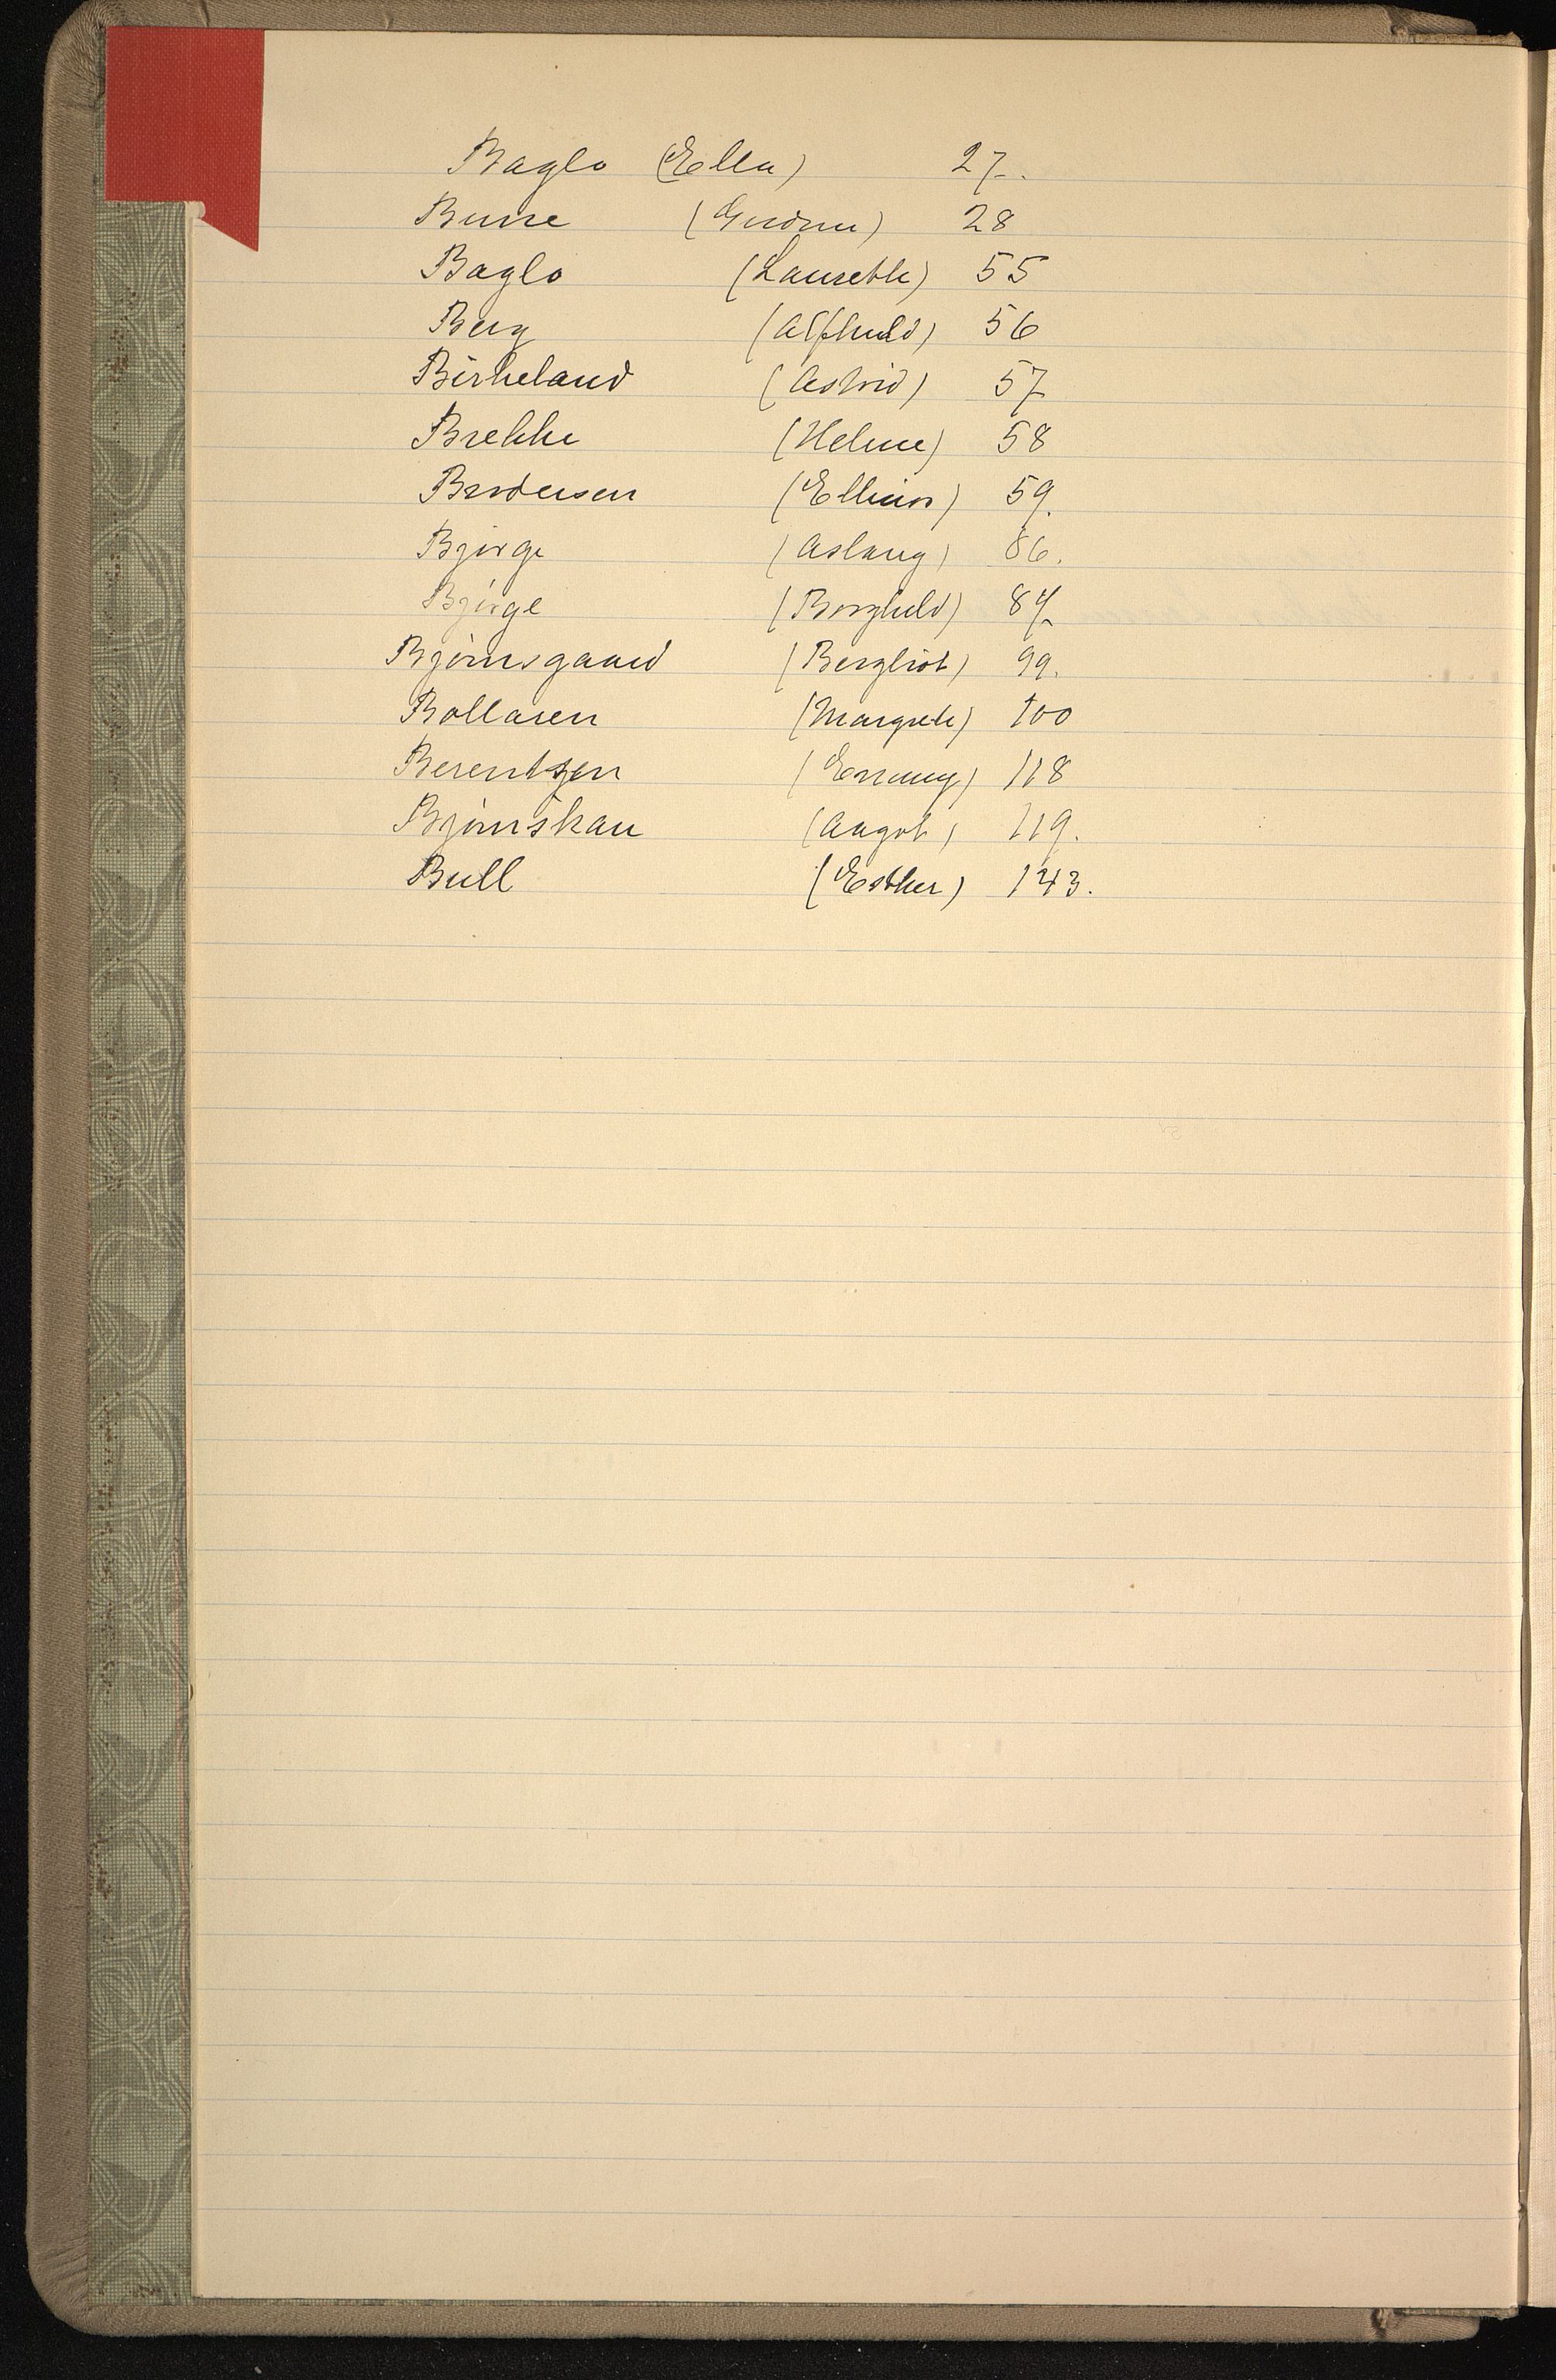 Baglo (Ella) 27.
Burre (Gudrun) 28
Baglo (Laurethe) 55
Berg (Alfhild) 56
Birkeland (Astrid) 57
Brekke (Helene) 58
Brodersen (Ellinor) 59.
Bjørge (Aslaug) 86.
Bjørge (Borghild) 87
Bjørnsgaard (Bergliot) 99.
Bollaren (Margrete) 100
Berentsen 118
Bjørnskau (Aagot) 119.
Bull (Esther) 143.